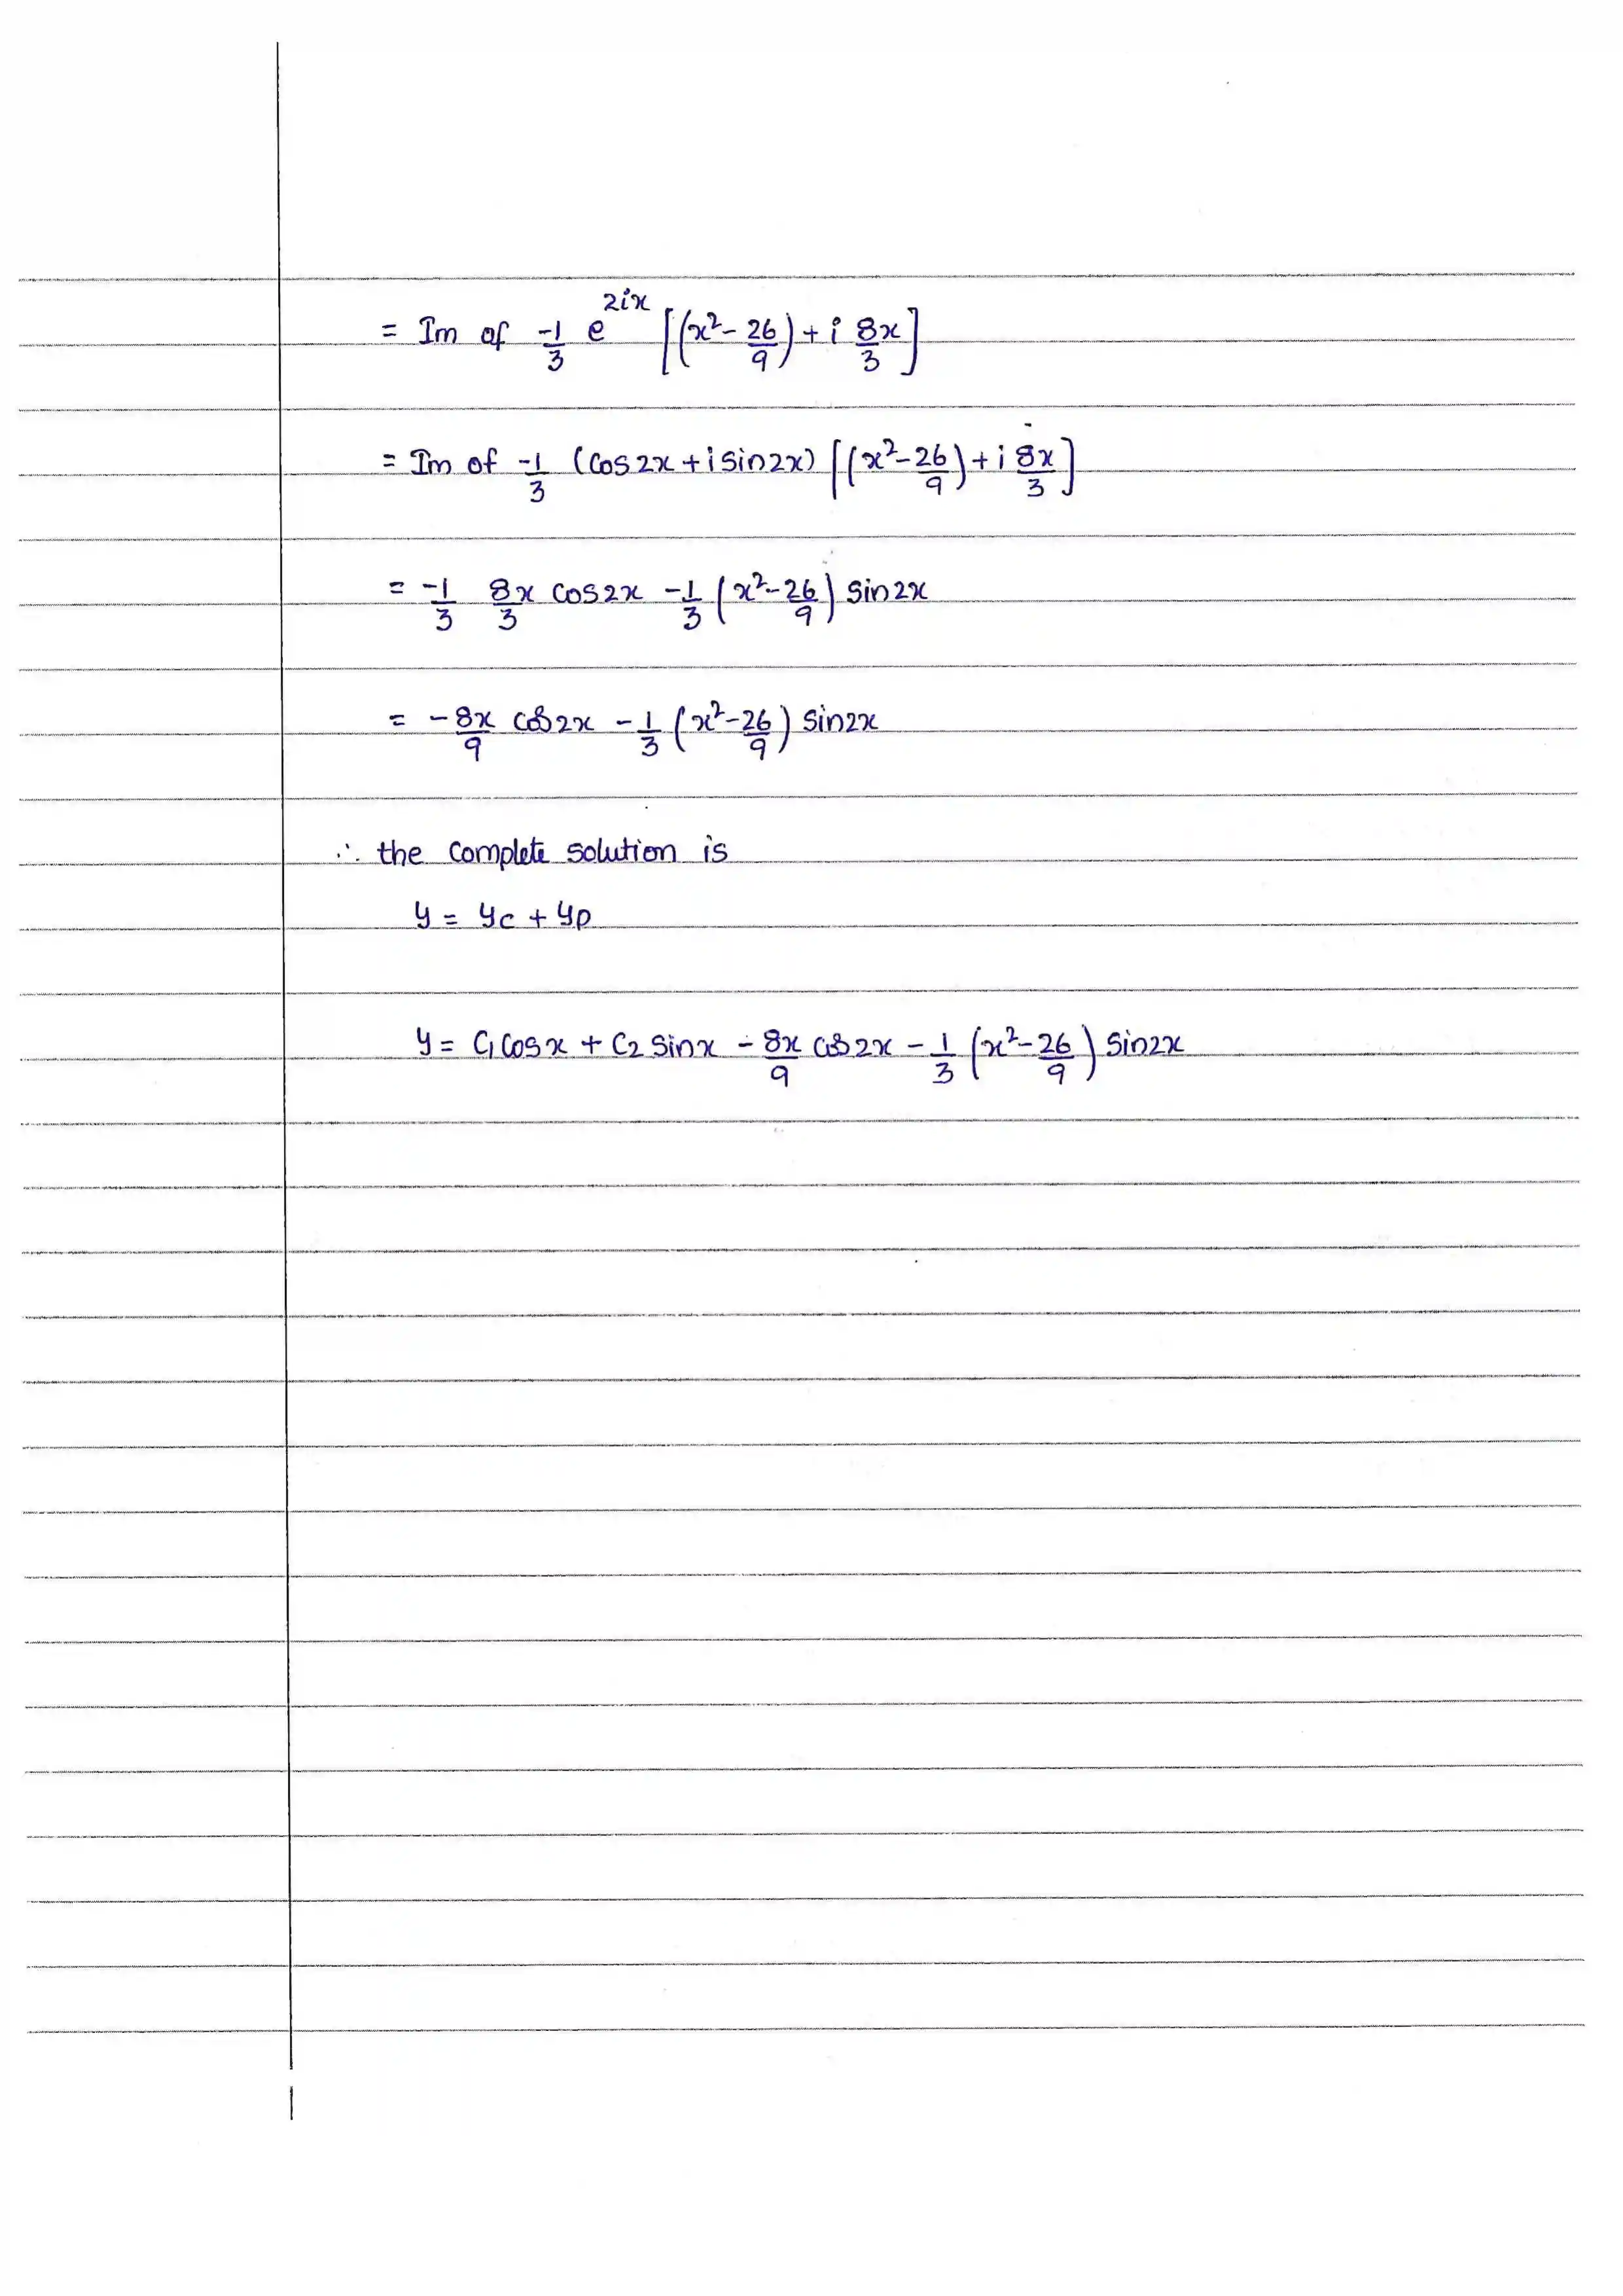 = Im of -1/3 e^{2ix} [(x² - 26/9) + i 8x/3]
= Im of -1/3 (cos2x + i sin2x) [(x² - 26/9) + i 8x/3]
= -1/3 8x/3 cos2x - 1/3 (x² - 26/9) sin2x
= -8x/9 cos2x - 1/3 (x² - 26/9) sin2x
∴ the complete solution is
y = yc + yp
y = C₁ cosx + C₂ sinx - 8x/9 cos2x - 1/3 (x² - 26/9) sin2x